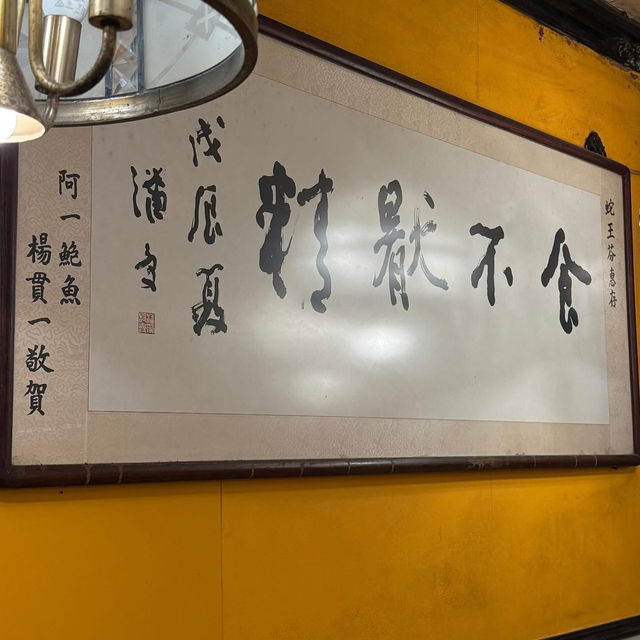 蛇王芬惠存
食不厭精
戊辰夏
阿一鮑魚
楊貫一敬賀